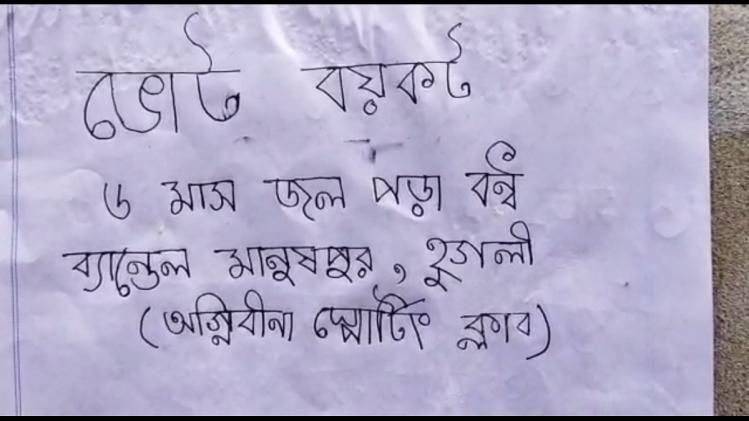 ভোট বয়কট
৬ মাস জল পড়া বন্ধ
ব্যান্ডেল মানুষপুর, হুগলী
(অগ্নিবীনা স্পোর্টিং ক্লাব)